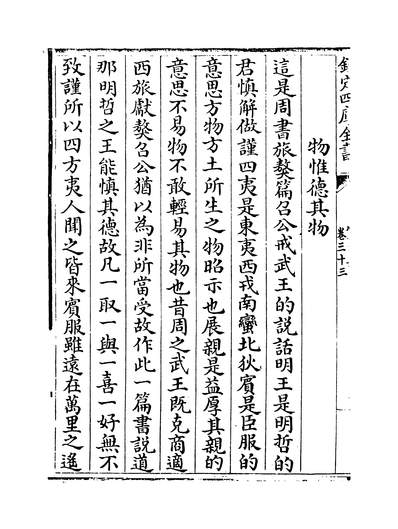 欽定四庫全書
卷三十三
物惟德其物
這是周書旅獒篇召公戒武王的説話明王是明哲的
君慎解做謹四夷是東夷西戎南蠻北狄賓是臣服的
意思方物方土所生之物昭示也展親是益厚其親的
意思不易物不敢輕易其物也昔周之武王既克商適
西旅獻獒召公猶以為非所當受故作此一篇書説道
那明哲之王能慎其德故凡一取一與一喜一好無不
致謹所以四方夷人聞之皆來賓服雖遠在萬里之遙